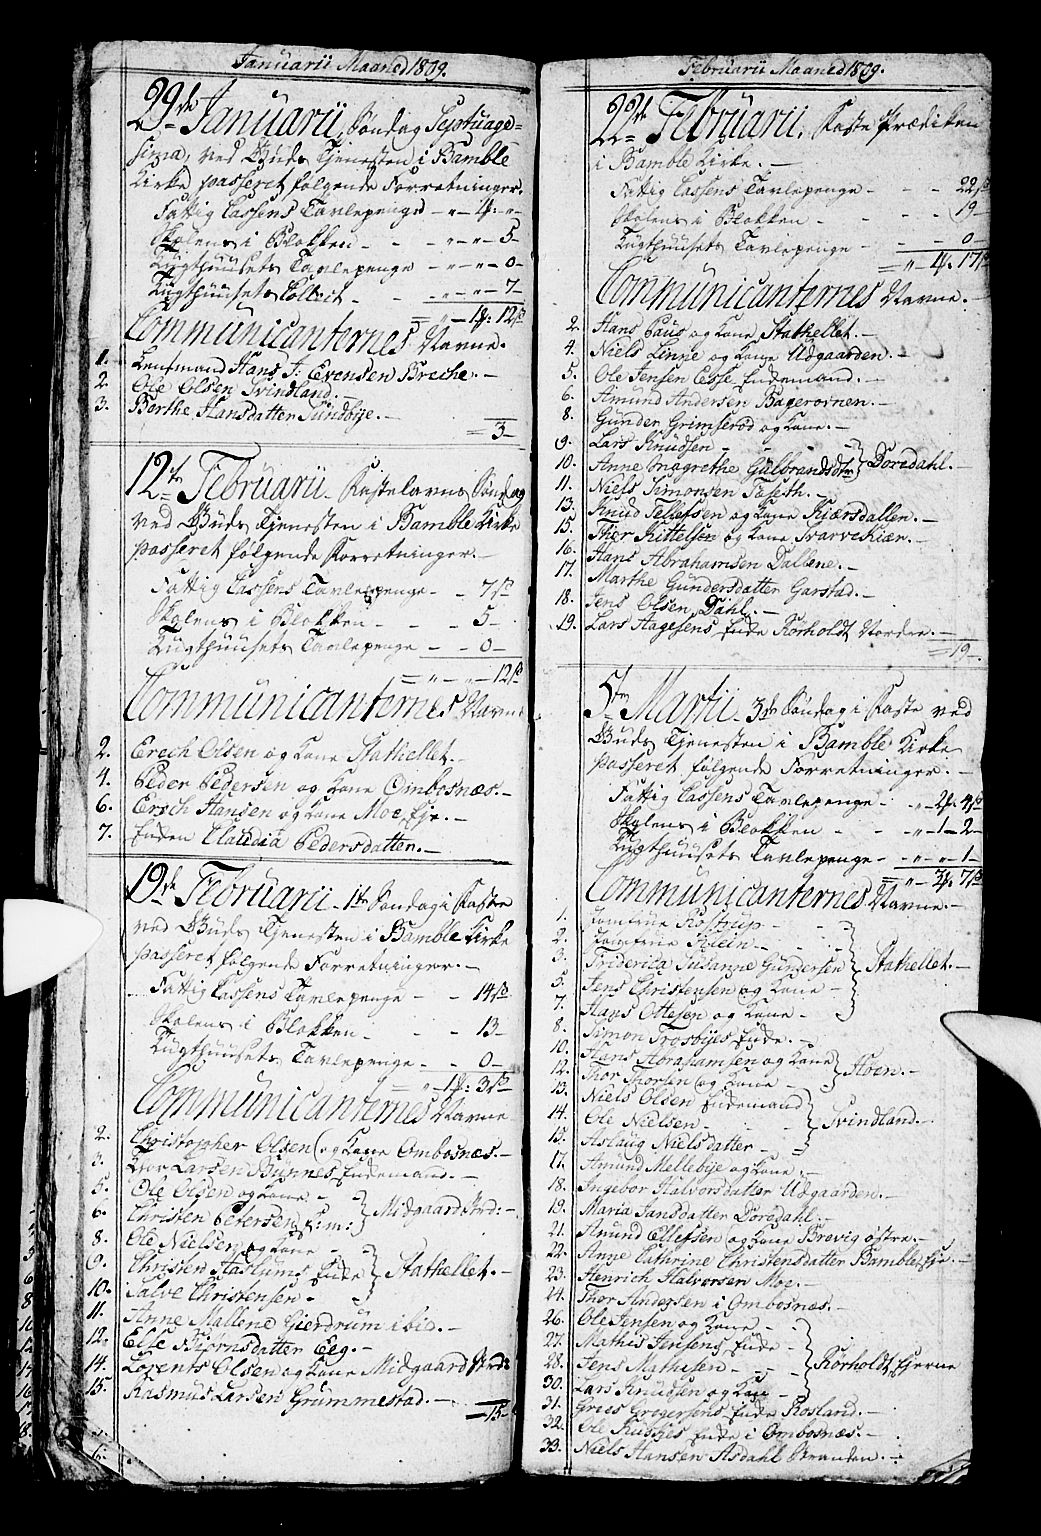 Januarii Maaned 1809.
29de Januarii, Søndag Septuage-
sima, ved Guds Tjenesten i Bamble
Kirke passeret følgende Forretninger.
Fattig Cassens Tavlepenge - „ - 1ʄ: „ -
Skolens i Blokken - - - „ - „ - 5 -
Tugthuusets Tavlepenge - „ - „ - 0 -
Tugthuusets Collect - - „ - „ - 7 -
= „ - 1ʄ: 12ß
Communicanternes Navne.
1. Lensmand Hans J: Evensen Breche. -
2. Ole Olsen Tvindland. -
3. Berthe Hansdatter Sundbye. -
= 3 -
12te Februarii - Fastelavns Søndag
ved Guds Tjenesten i Bamble Kirke
passeret følgende Forretninger. -
Fattig Cassens Tavlepenge - - 7ß
Skolens i Blokken - - - 5 -
Tugthuusets Tavlepenge - - 0 -
= „ - „ - 12ß
Communicanternes Navne
2. Erech Olsen og Kone Stathellet. -
4. Peder Pedersen og Kone Ombosnæs. -
6. Erich Hansen og Kone Moe Eje. -
7. Enken Claudia Pedersdatter. -
19de Februarii - 1te Søndag i Faste
ved Guds Tjenesten i Bamble Kirke
passeret følgende Forretninger. -
Fattig Cassens Tavlepenge - - 14ß
Skolens i Blokken - - - 13 -
Tugthuusets Tavlepenge - - 0 -
= „ - 1ʄ: 3ß
Communicanternes Navne
2. Christopher Olsen og Kone Ombosnæs. -
3. Thor Larsen Bunnes Enkemand. -
5. Ole Olsen og Kone -
6. Christen Petersen S: m: } Midgaardstrd: -
8. Ole Nielsen og Kone -
9. Christen Aaslums Enke } Stathellet. -
10. Salve Christensen -
11. Anne Mallene Gierdrum ibid. -
12. Else Biørnsdatter Eeg. -
14. Lorents Olsen og Kone Midgaard Strd:
15. Rasmus Larsen Grummestad. -
= 15 -
Februarii Maaned 1809.
22de Februarii, Faste Prædiken
i Bamble Kirke. -
Fattig Cassens Tavlepenge - - - 22ß
Skolens i Blokken - - - - 19 -
Tugthuusets Tavlepenge - - - 0 -
= „ - 1ʄ: 17ß
Communicanternes Navne. -
2. Hans Paus og Kone Stathellet. -
4. Niels Linne og Kone Udgaarden. -
5. Ole Jensen Esse Enkemand. -
6. Amund Andersen Bagerovnen. -
8. Gunder Grimserød og Kone. -
9. Lars Knudsen - - -
10. Anne Magrethe Gulbrandsdtr } Doredahl. -
11. Niels Simonsen Foseth. -
13. Knud Tellefsen og Kone Kjærsdallen. -
15. Thor Kittelsen og Kone Svarvekiær. -
16. Hans Abrahamsen Dallene. -
17. Marthe Gundersdatter Garstad. -
18. Jens Olsen Dahl. -
19. Lars Hagesens Enke Rørholdt Nordre. -
= 19 -
5te Martii - 3de Søndag i Faste ved
Guds Tjenesten i Bamble Kirke
passeret følgende Forretninger. -
Fattig Cassens Tavlepenge - „ - 2ʄ: 4ß
Skolens i Blokken - - - „ - 1 - 2 -
Tugthuusets Tavlepenge - „ - „ - 1 -
= „ - 3ʄ: 7ß
Communicanternes Navne. -
1. Jomfrue Rostrup - -
2. Jomfrue Klein - - -
3. Friderica Susanne Gundersen } Stathellet. -
5. Jens Christensen og Kone -
7. Hans Ottesen og Kone -
8. Simon Trosbyes Enke. -
10. Hans Abrahamsen og Kone } Hoen. -
12. Thor Thorsen og Kone -
13. Niels Olsen Enkemand
14. Ole Nielsen - - } Tvindland. -
15. Aslaug Nielsdatter - -
17. Amund Mellebye og Kone. -
18. Ingebor Halvorsdatter Udgaarden. -
19. Maria Jansdatter Doredahl. -
21. Amund Ellefsen og Kone Brevig østre. -
22. Anne Cathrine Christensdatter Bamble Eje. -
23. Henrich Halvorsen Moe. -
24. Thor Andersen i Ombosnæs. -
26. Ole Jensen og Kone -
27. Mathis Jensens Enke -
28. Jens Mathisen - - } Rørholdt fjerne
30. Lars Knudsen og Kone -
31. Gries Gregersens Enke Rosland. -
32. Ole Kuskes Enke i Ombosnæs. -
33. Niels Hansen Asdahl Stranden. -